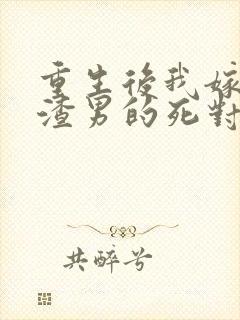 重生後我嫁
渣男的死對
共醉兮